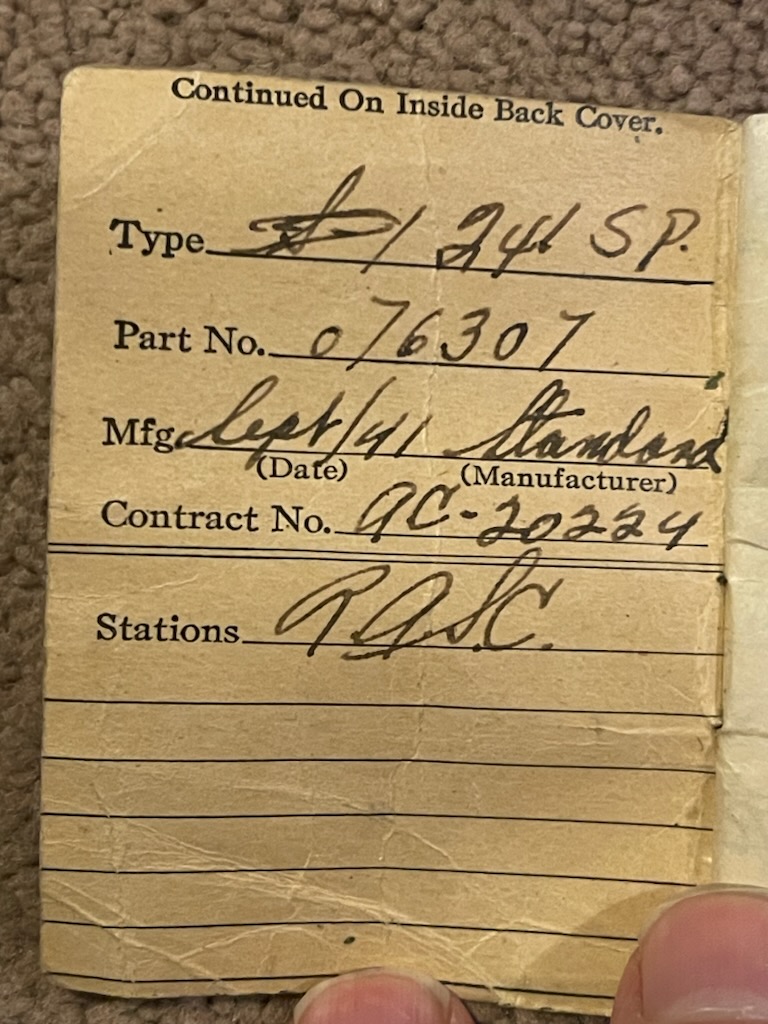 Continued On Inside Back Cover.
Type 1 24' SP.
Part No. 076307
Mfg. Sept/41 Standard
(Date) (Manufacturer)
Contract No. AC-20224
Stations R.A.S.C.